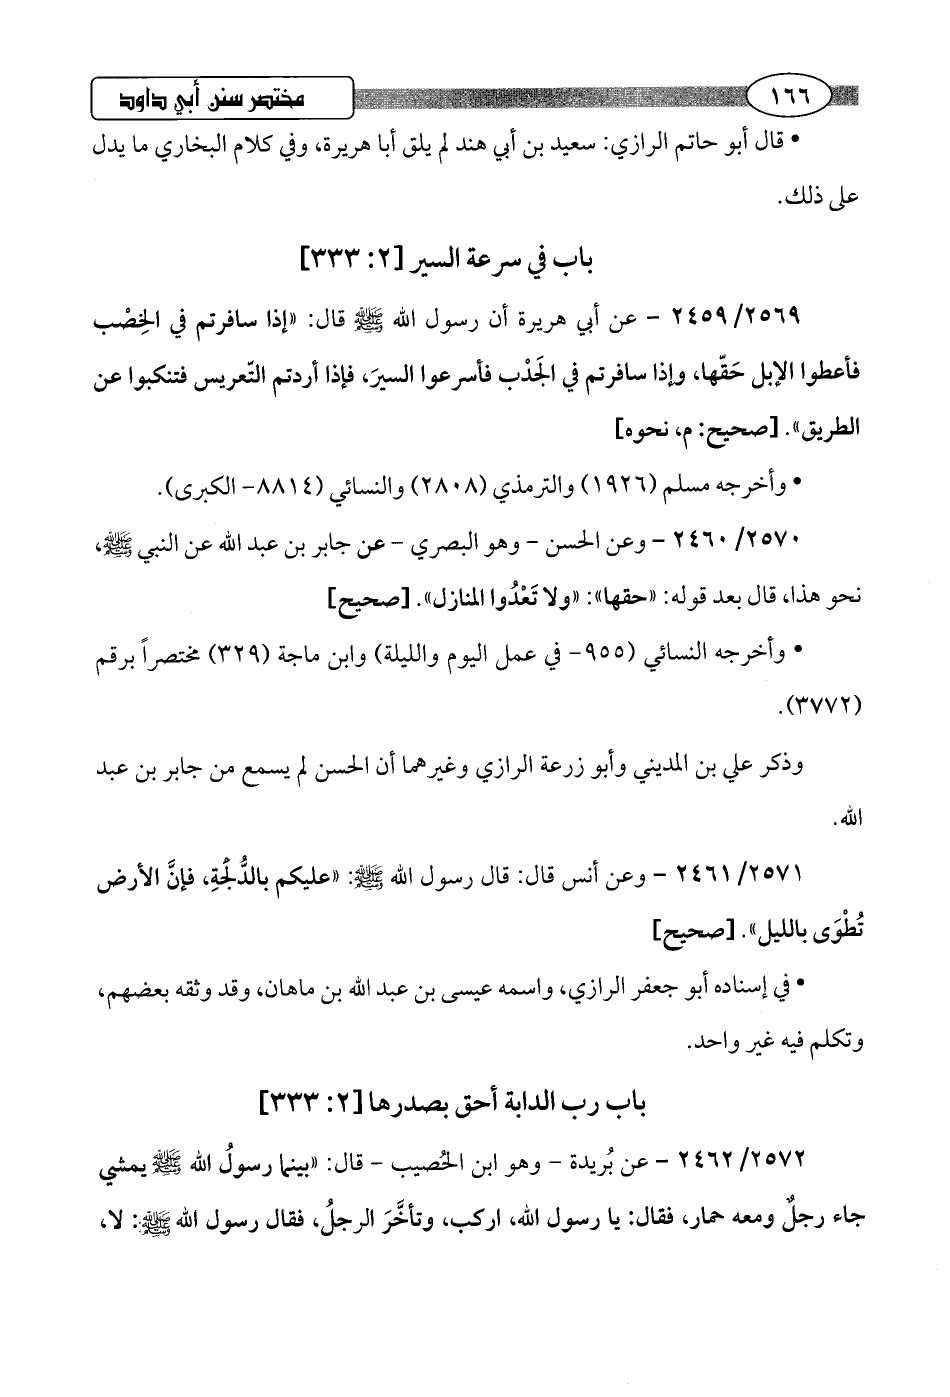 ١٦٦
مختصر سنن أبي داود
• قال أبو حاتم الرازي: سعيد بن أبي هند لم يلق أبا هريرة، وفي كلام البخاري ما يدل
على ذلك.
باب في سرعة السير [٢: ٣٣٣]
٢٤٥٩/٢٥٦٩ - عن أبي هريرة أن رسول الله ﷺ قال: «إذا سافرتم في الخِصْب
فأعطوا الإبل حَقّها، وإذا سافرتم في الجَدْب فأسرعوا السيرَ، فإذا أردتم التّعريس فتنكبوا عن
الطريق». [صحيح: م، نحوه]
• وأخرجه مسلم (١٩٢٦) والترمذي (٢٨٠٨) والنسائي (٨٨١٤- الكبرى).
٢٤٦٠/٢٥٧٠ - وعن الحسن - وهو البصري - عن جابر بن عبد الله عن النبي ﷺ،
نحو هذا، قال بعد قوله: «حقها»: «ولا تَعْدُوا المنازل». [صحيح]
• وأخرجه النسائي (٩٥٥- في عمل اليوم والليلة) وابن ماجة (٣٢٩) مختصراً برقم
(٣٧٧٢).
وذكر علي بن المديني وأبو زرعة الرازي وغيرهما أن الحسن لم يسمع من جابر بن عبد
الله.
٢٤٦١/٢٥٧١ - وعن أنس قال: قال رسول الله ﷺ: «عليكم بالدُّلْجَةِ، فإنَّ الأرض
تُطْوَى بالليل». [صحيح]
• في إسناده أبو جعفر الرازي، واسمه عيسى بن عبد الله بن ماهان، وقد وثقه بعضهم،
وتكلم فيه غير واحد.
باب رب الدابة أحق بصدرها [٢: ٣٣٣]
٢٤٦٢/٢٥٧٢ - عن بُريدة - وهو ابن الحُصيب - قال: «بينما رسولُ الله ﷺ يمشي
جاء رجلٌ ومعه حمار، فقال: يا رسول الله، اركب، وتأخَّرَ الرجلُ، فقال رسول الله ﷺ: لا،